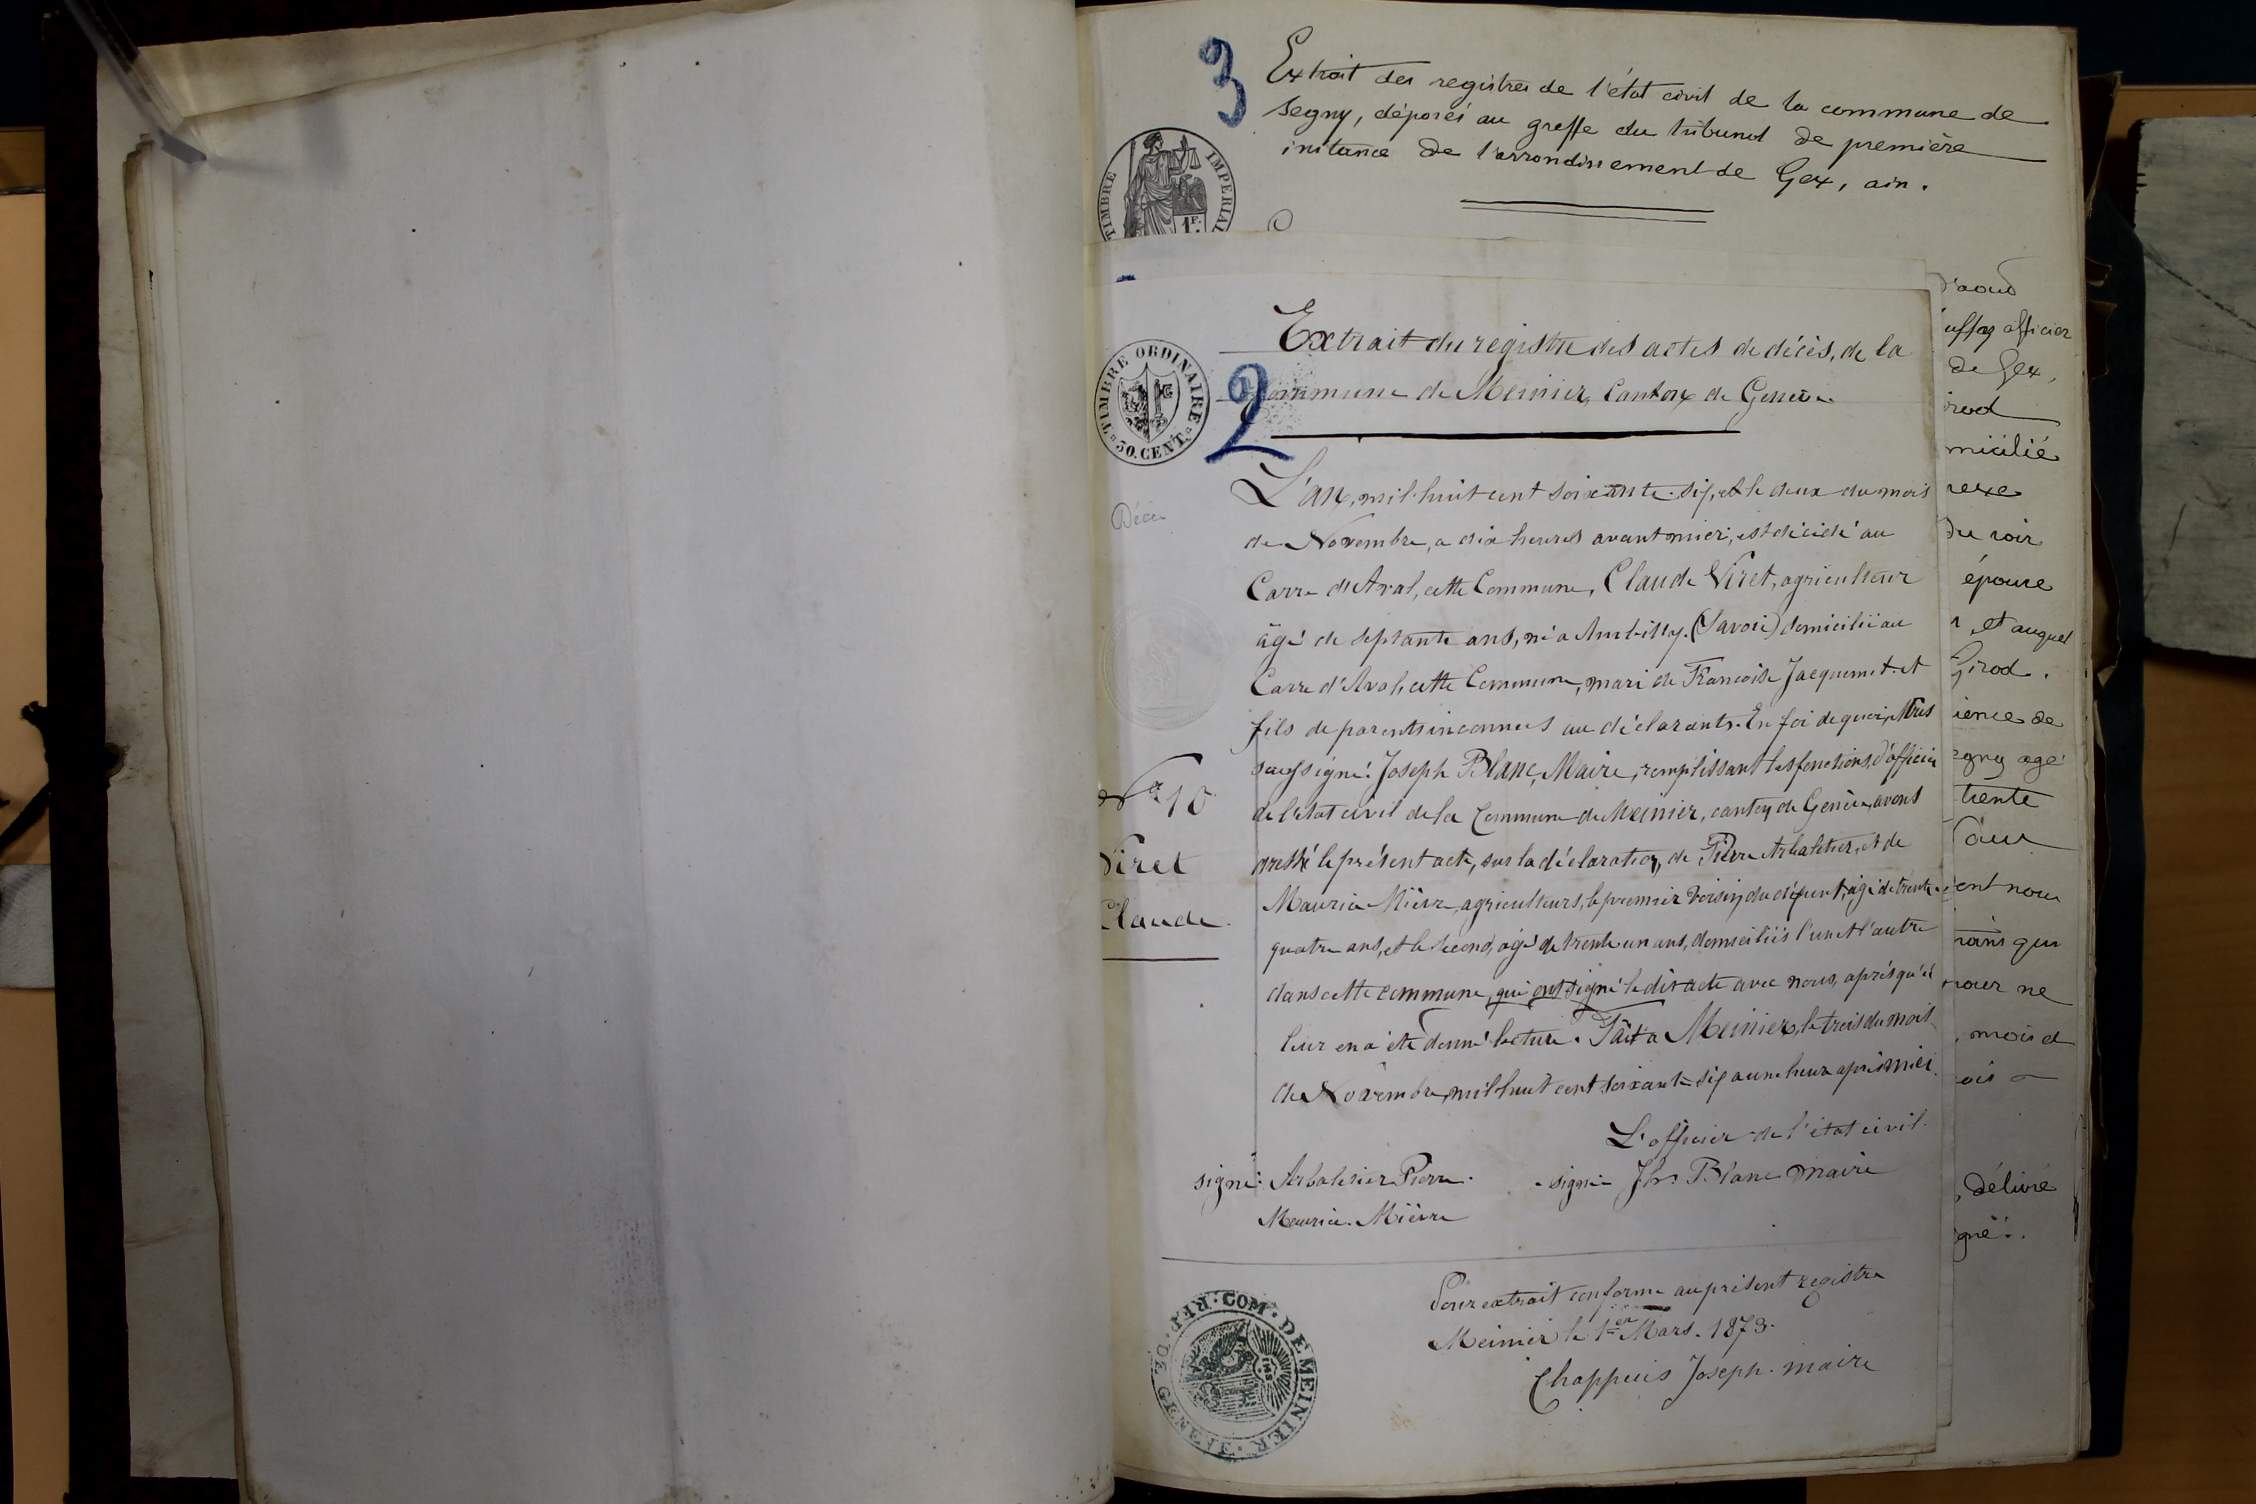 3
Extrait des registres de l'état civil de la commune de
Segny, déposés au greffe du tribunal de première
instance de l'arrondissement de Gex, ain.
TIMBRE IMPERIAL
1F.
Extrait du registre des actes de décès, de la
Commune de Meinier, Canton de Genève.
TIMBRE ORDINAIRE
30. CENT.
2
Décès
L'an, mil huit cent soixante-six, et le deux du mois
de Novembre, a dix heures avant midi, est décédé au
Carre d'Aval, cette Commune, Claude Viret, agriculteur
âgé de septante ans, né a Ambilly (Savoie) domicilié au
Carre d'Aval, cette Commune, mari de Francoise Jacquemet et
fils de parents inconnus au déclarants. En foi de quoi, Nous
soussigné: Joseph Blanc, Maire, remplissant les fonctions, d'officier
de l'état civil de la Commune de Meinier, canton de Genève, avons
dressé le présent acte, sur la déclaration, de Pierre Arbalétier, et de
Maurice Mièvre, agriculteurs, le premier voisin du défunt, âgé de trente
quatre ans, et le second, âgé de trente un ans, domiciliés l'un et l'autre
dans cette commune, qui ont signé le dit acte avec nous, après qu'il
leur en a été donné lecture. Fait a Meinier, le trois du mois
de Novembre, mil huit cent soixante-six a une heure après midi.
No 10
Viret
Claude.
L'officier de l'état civil.
signé: Arbalesier Pierre. signé Jh. Blanc maire
Maurice. Mièvre
Pour extrait conforme au présent registre
Meinier le 1er Mars. 1873.
Chappuis Joseph. maire
COM. DE MEINIER. RÉP. DE GENÈVE
d'août
officier
de Gex,
irod
micilié
nexe
du soir
épouse
, et auquel
Girod.
ience de
egny agé
trente
ent nous
pour ne
, mois et
, délivré
gné.